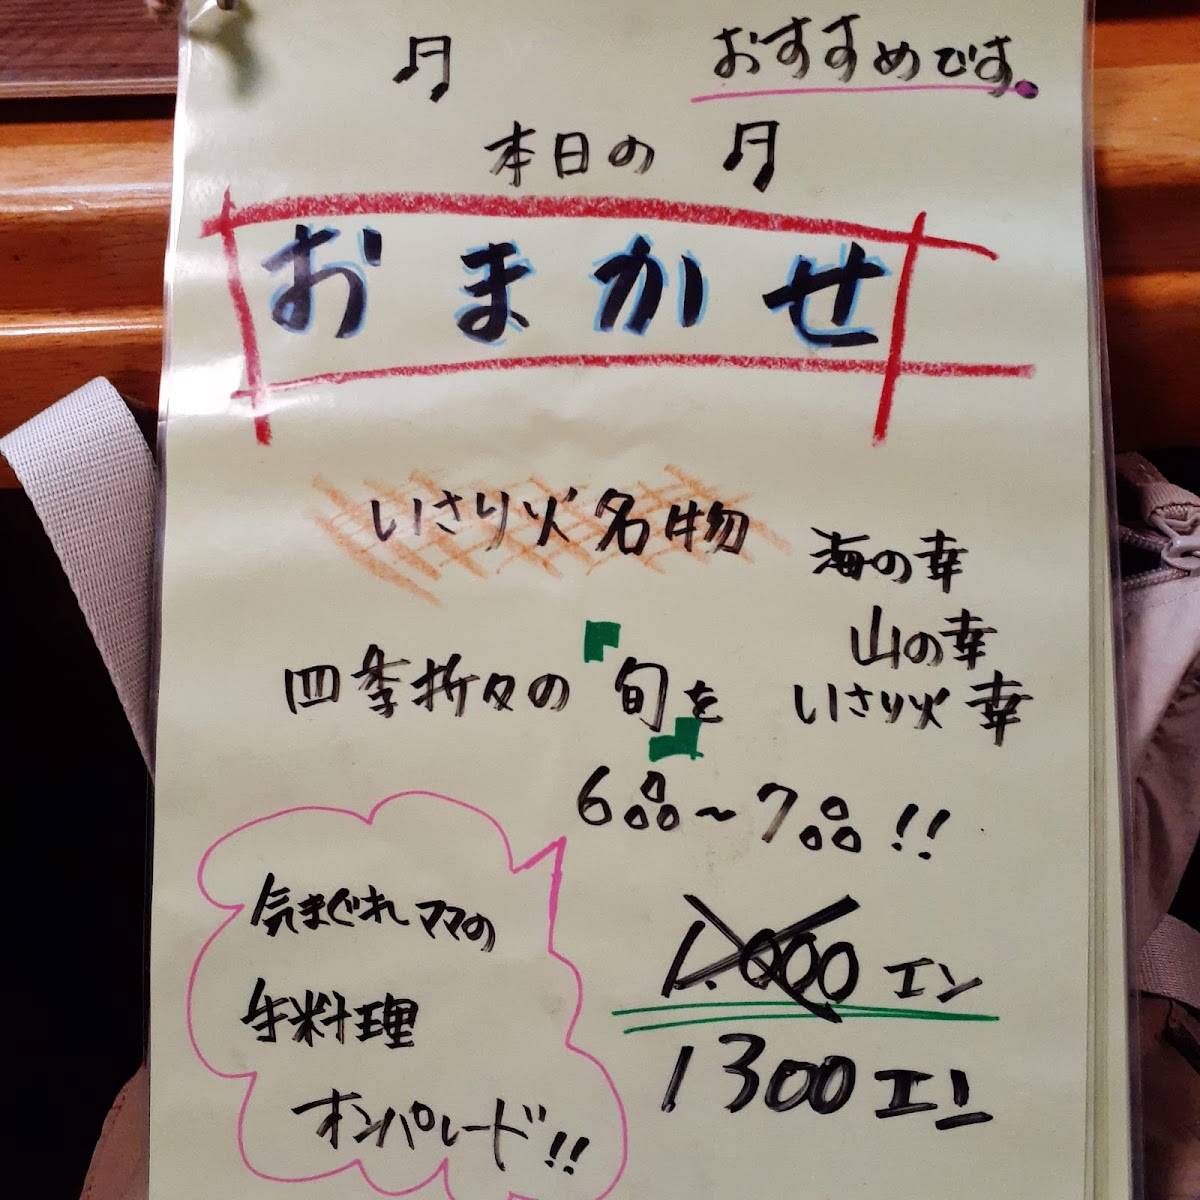 おすすめです。
本日の
おまかせ
いさり火名物
海の幸
山の幸
いさり火幸
四季折々の「旬」を
6品～7品!!
1.000エン
1300エン
気まぐれママの
手料理
オンパレード!!